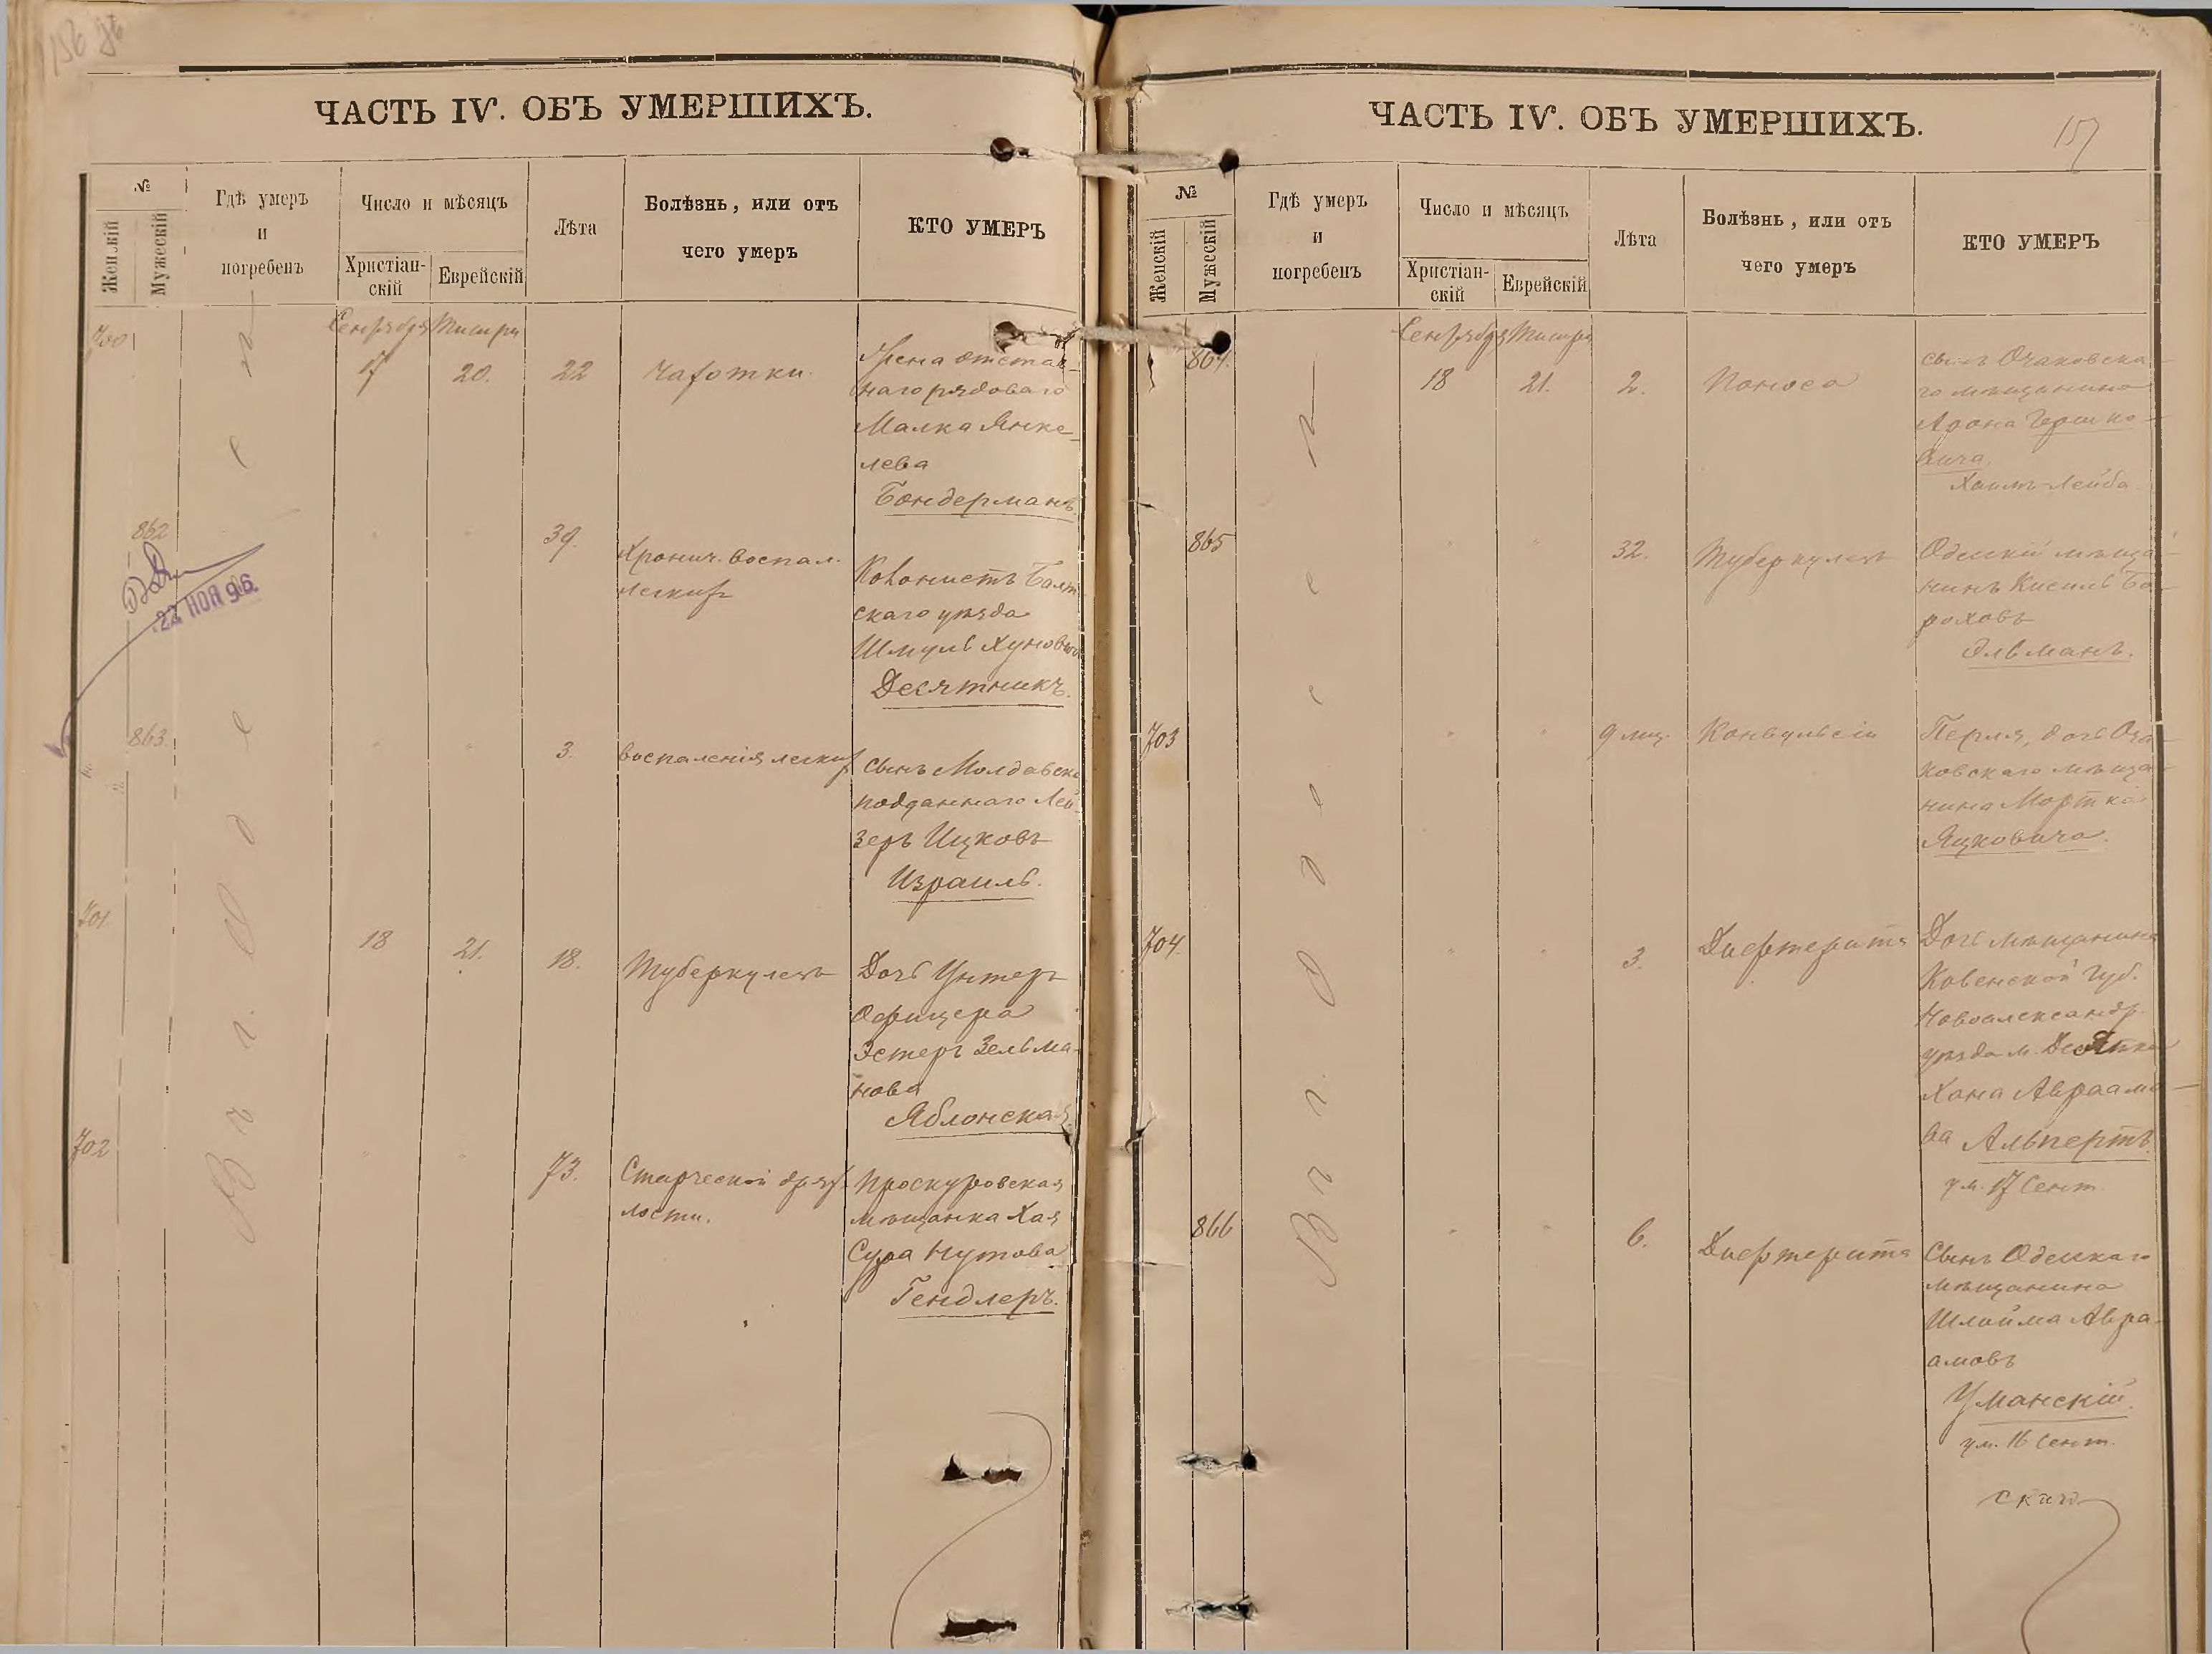 ЧАСТЬ IV. ОБЪ УМЕРШИХЪ.
№
Женскій
Мужескій
Гдѣ умеръ
и
погребенъ
Число и мѣсяцъ
Христіан-
скій
Еврейскій
Лѣта
Болѣзнь, или отъ
чего умеръ
КТО УМЕРЪ
Сентября Тишри
700
17
20.
22
Чахотки
Жена отстав-
наго рядоваго
Малка Янке-
лева
Бондерманъ.
862
39.
Хронич. воспал.
легкихъ
Колонистъ Балт
скаго уѣзда
Шмуль Хуновъ
Десятникъ.
22 НОЯ 96
863.
3.
воспаленія легких
сынъ Молдавск
подданнаго Лей-
зеръ Ицковъ
Израиль.
701.
18
21.
18.
Туберкулезъ
Дочь Унтеръ
Офицера
Эстеръ Зельма-
нова
Яблонская
702
73.
Старческой дрях-
лости.
Проскуровская
мѣщанка Хая
Сура Нутова
Гендлеръ.
Въ г. Одессѣ
ЧАСТЬ IV. ОБЪ УМЕРШИХЪ.
157
№
Женскій
Мужескій
Гдѣ умеръ
и
погребенъ
Число и мѣсяцъ
Христіан-
скій
Еврейскій
Лѣта
Болѣзнь, или отъ
чего умеръ
КТО УМЕРЪ
Сентября Тишри
864.
18
21.
2.
Поноса
сынъ Очаковска-
го мѣщанина
Арона Гершко-
вича
Хаимъ-Лейба
865
32.
Туберкулезъ
Одесскій мѣща-
нинъ Кисиль Бо-
роховъ
Эльманъ.
703
9 мѣц.
Конвульсіи
Перля, дочь Оча-
ковскаго мѣща-
нина Мортка
Яцковича.
704.
3.
Дифтерита
Дочь мѣщанина
Ковенской Губ.
Новоалександр.
уѣзда м.
Хана Авраамо-
ва Альпертъ.
ум. 17 Сент.
866
6.
Дифтерита
Сынъ Одесскаго
мѣщанина
Шлойма Авра-
амовъ
Уманскій.
ум. 16 Сент.
Въ г. Одессѣ